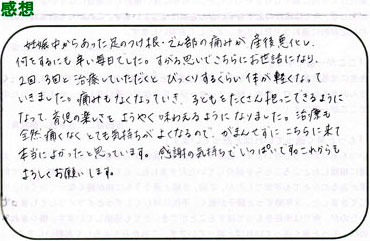 感想
妊娠中からあった足のつけ根・でん部の痛みが産後悪化し、
何をするにも辛い毎日でした。すがる思いでこちらにお世話になり、
2回、3回と治療していただくと、びっくりするぐらい体が軽くなって
いきました。痛みもなくなっていき、子どもをたくさん抱っこできるように
なって、育児の楽しさをようやく味わえるようになりました。治療も
全然痛くなくとても気持ちがよくなるので、がまんせずにこちらに来て
本当によかったと思っています。感謝の気持ちでいっぱいです。これからも
よろしくお願いします。